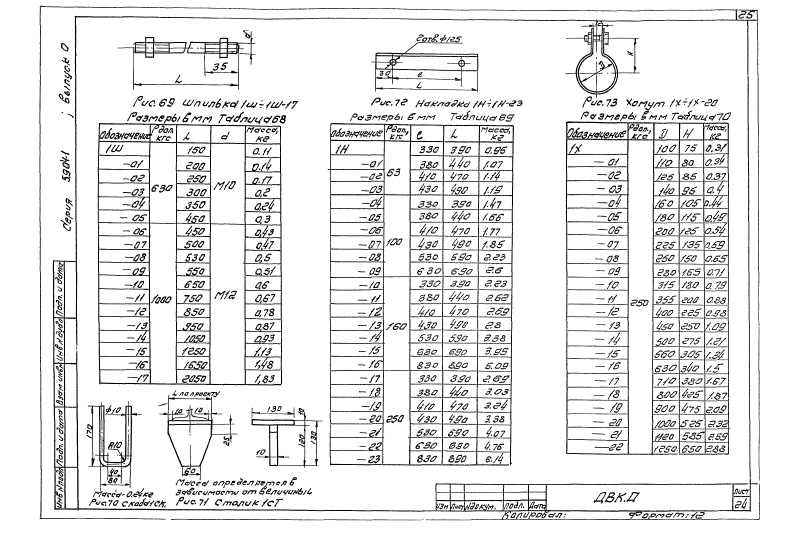 25
Серия 5.904-1 ; Выпуск 0
35
L
d
2 отв. ф12.5
30
e
L
H
D
Рис. 69 Шпилька 1Ш÷1Ш-17
Размеры в мм Таблица 68
Обозначение Рдоп, кгс L d Масса, кг
1Ш 630 150 М10 0,11
-01 200 0,14
-02 250 0,17
-03 300 0,2
-04 350 0,24
-05 450 0,3
-06 1000 450 М12 0,43
-07 500 0,47
-08 530 0,5
-09 550 0,51
-10 650 0,6
-11 750 0,67
-12 850 0,78
-13 950 0,87
-14 1050 0,93
-15 1250 1,13
-16 1650 1,48
-17 2050 1,83
Рис. 72 Накладка 1Н÷1Н-23
Размеры в мм Таблица 69
Обозначение Рдоп, кгс e L Масса, кг
1Н 63 330 390 0.96
-01 380 440 1.07
-02 410 470 1.14
-03 430 490 1.19
-04 100 330 390 1.47
-05 380 440 1.66
-06 410 470 1.77
-07 430 490 1.85
-08 530 590 2.23
-09 630 690 2.6
-10 160 330 390 2.23
-11 380 440 2.52
-12 410 470 2.69
-13 430 490 2.8
-14 530 590 3.38
-15 630 690 3.95
-16 830 890 5.09
-17 250 330 390 2.69
-18 380 440 3.03
-19 410 470 3.24
-20 430 490 3.38
-21 530 590 4.07
-22 630 690 4.76
-23 830 890 6.14
Рис. 73 Хомут 1Х÷1Х-20
Размеры в мм Таблица 70
Обозначение Рдоп, кгс D H Масса, кг
1Х 250 100 75 0.31
-01 110 80 0.34
-02 125 85 0.37
-03 140 95 0.4
-04 160 105 0.44
-05 180 115 0.49
-06 200 125 0.54
-07 225 135 0.59
-08 250 150 0.65
-09 280 165 0.71
-10 315 180 0.79
-11 355 200 0.88
-12 400 225 0.98
-13 450 250 1.09
-14 500 275 1.21
-15 560 305 1.34
-16 630 340 1.5
-17 710 380 1.67
-18 800 425 1.87
-19 900 475 2.09
-20 1000 525 2.32
-21 1120 585 2.59
-22 1250 650 2.88
ф10
170
R10
40
80
Масса-0.24кг
Рис. 70 Скоба 1Ск.
L по проекту
10 10
25
60
130
10
120
130
10
Масса определяется в
зависимости от величины L
Рис. 71 Столик 1СТ
Инв.N подл. Подп. и дата Взам инв. Инв.N дубл. Подп. и дата
Изм Лит N докум. Подп. Дата
ДВК.Д
Лист
24
Копировал: Формат: 12